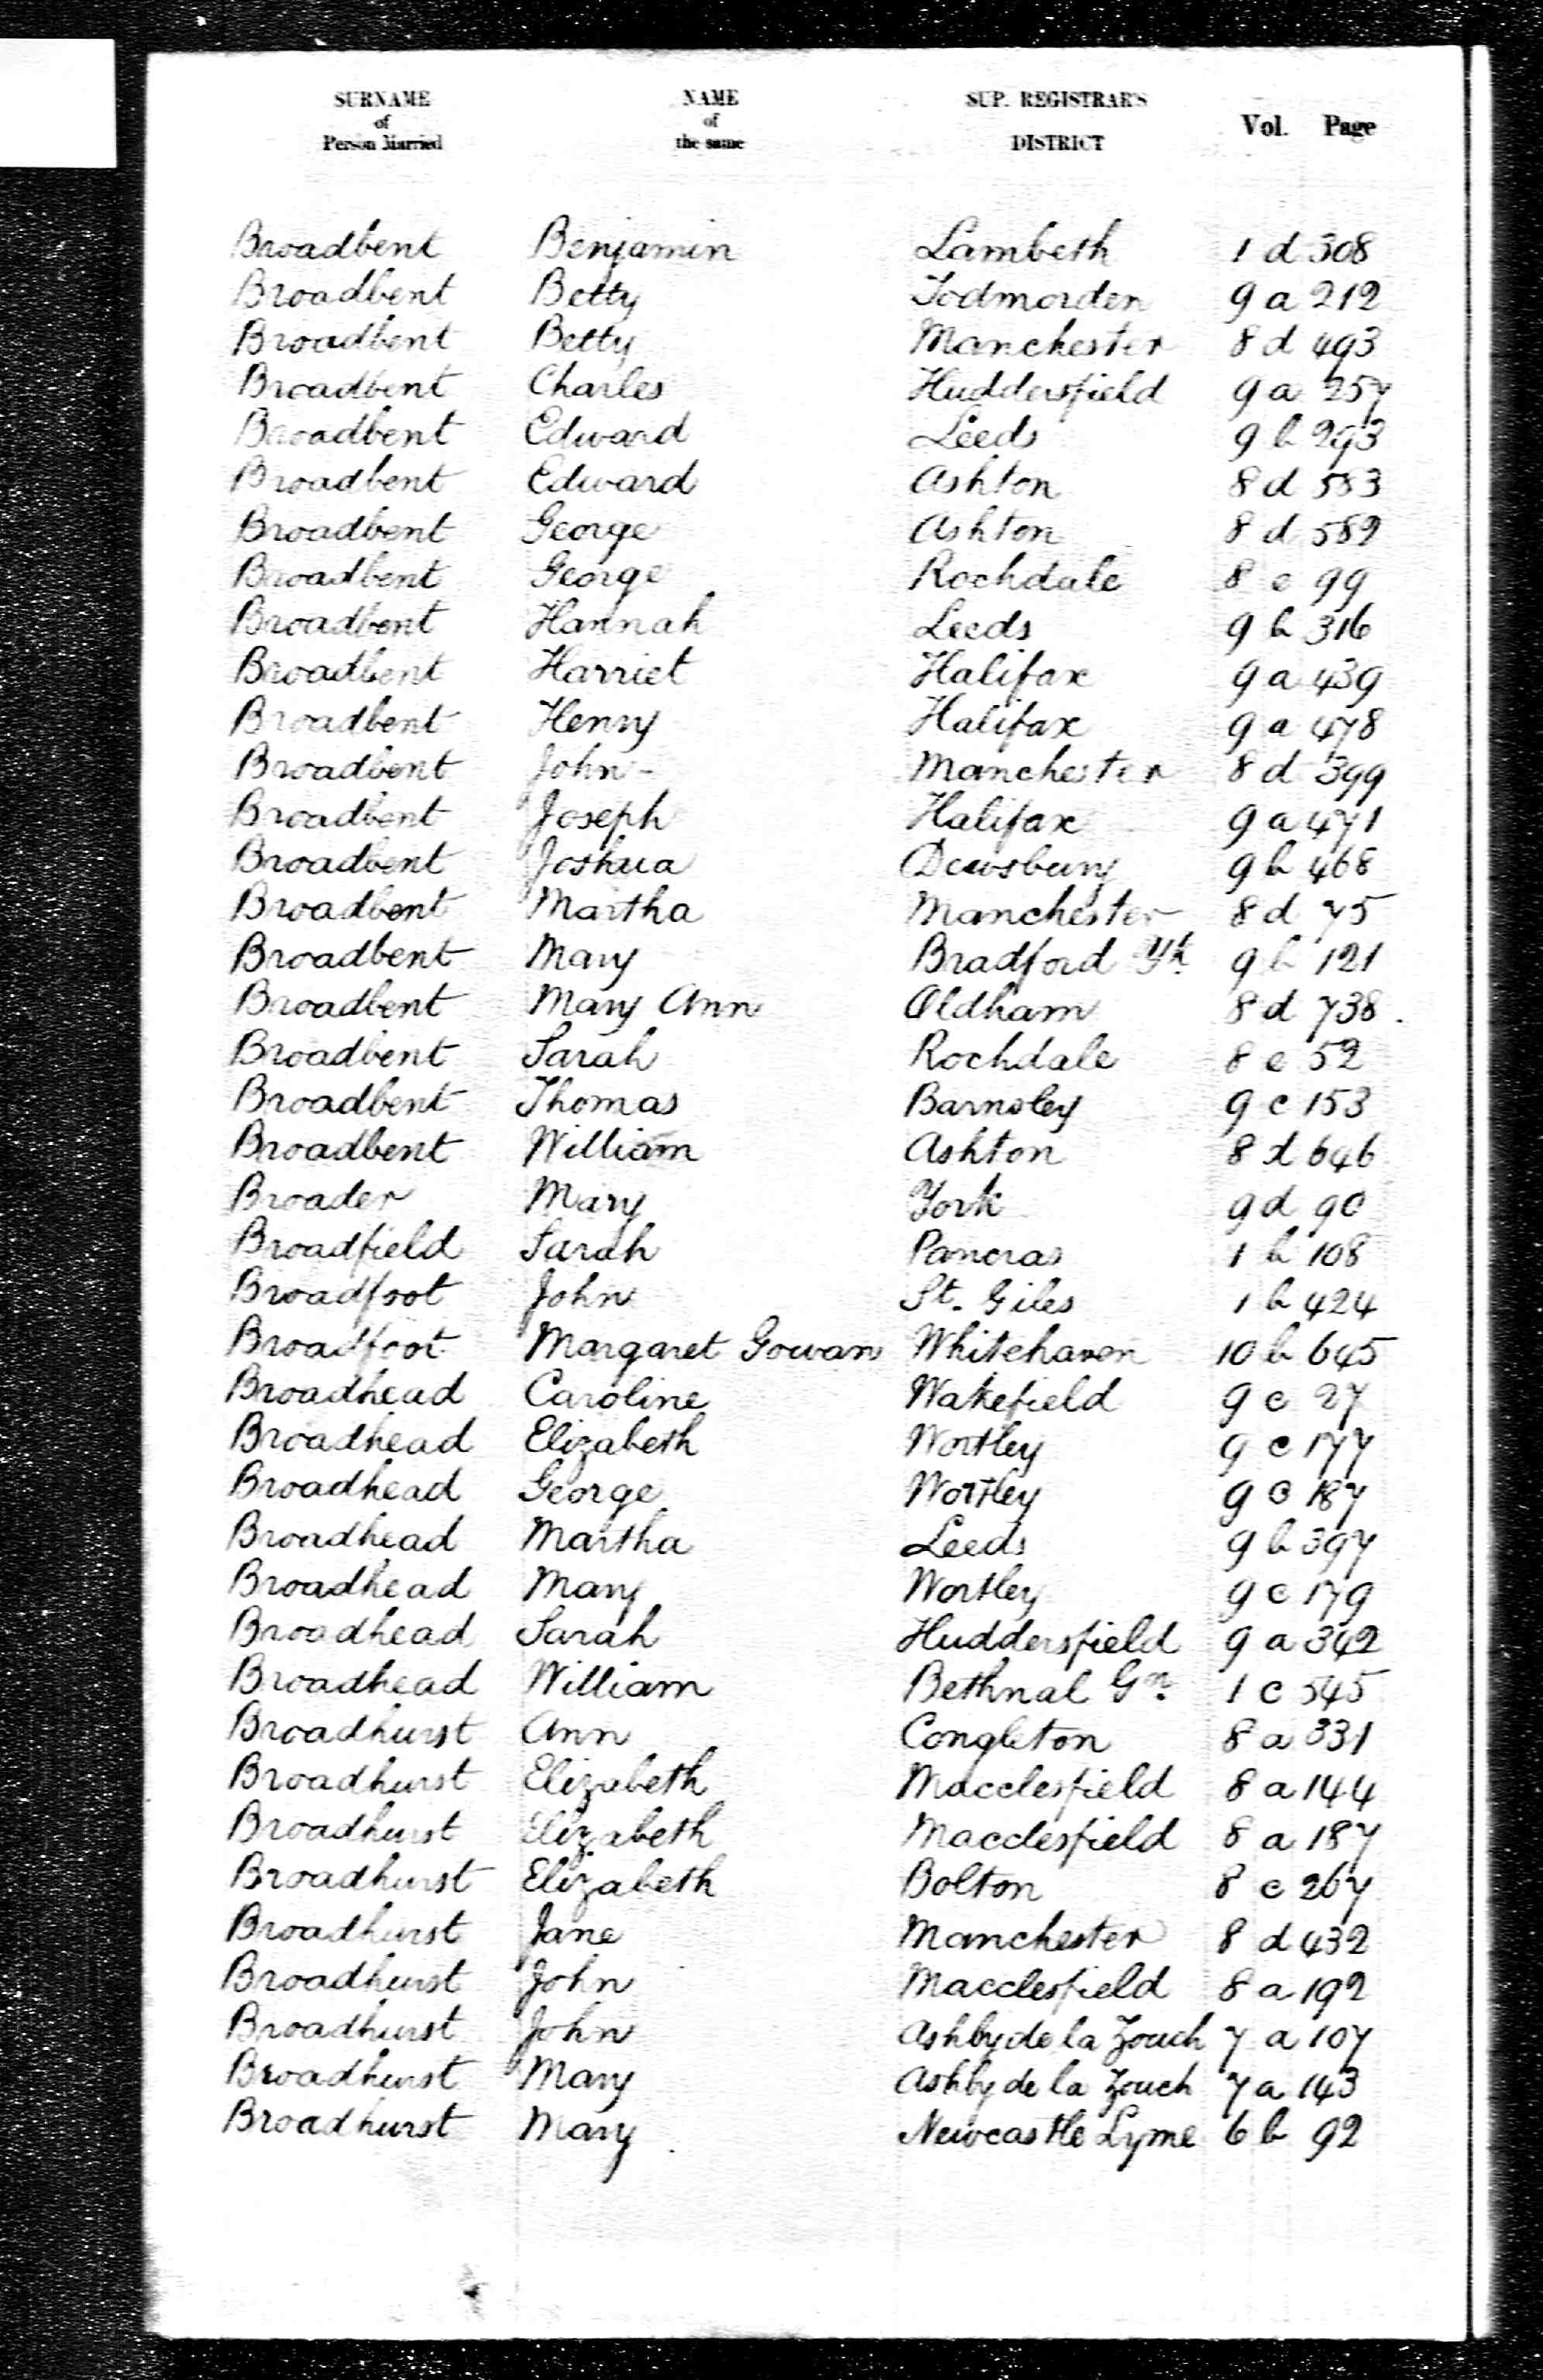 SURNAME of Person Married NAME of the same SUP. REGISTRAR'S DISTRICT Vol. Page
Broadbent Benjamin Lambeth 1 d 308
Broadbent Betty Todmorden 9 a 212
Broadbent Betty Manchester 8 d 493
Broadbent Charles Huddersfield 9 a 257
Broadbent Edward Leeds 9 b 293
Broadbent Edward Ashton 8 d 583
Broadbent George Ashton 8 d 589
Broadbent George Rochdale 8 e 99
Broadbent Hannah Leeds 9 b 316
Broadbent Harriet Halifax 9 a 439
Broadbent Henry Halifax 9 a 478
Broadbent John Manchester 8 d 399
Broadbent Joseph Halifax 9 a 471
Broadbent Joshua Dewsbury 9 b 468
Broadbent Martha Manchester 8 d 75
Broadbent Mary Bradford Yk. 9 b 121
Broadbent Mary Ann Oldham 8 d 738
Broadbent Sarah Rochdale 8 e 52
Broadbent Thomas Barnsley 9 c 153
Broadbent William Ashton 8 d 646
Broader Mary York 9 d 90
Broadfield Sarah Pancras 1 b 108
Broadfoot John St. Giles 1 b 424
Broadfoot Margaret Gowan Whitehaven 10 b 645
Broadhead Caroline Wakefield 9 c 27
Broadhead Elizabeth Wortley 9 c 177
Broadhead George Wortley 9 c 187
Broadhead Martha Leeds 9 b 397
Broadhead Mary Wortley 9 c 179
Broadhead Sarah Huddersfield 9 a 342
Broadhead William Bethnal Gn. 1 c 545
Broadhurst Ann Congleton 8 a 331
Broadhurst Elizabeth Macclesfield 8 a 144
Broadhurst Elizabeth Macclesfield 8 a 187
Broadhurst Elizabeth Bolton 8 c 267
Broadhurst Jane Manchester 8 d 432
Broadhurst John Macclesfield 8 a 192
Broadhurst John Ashby de la Zouch 7 a 107
Broadhurst Mary Ashby de la Zouch 7 a 143
Broadhurst Mary Newcastle Lyme 6 b 92